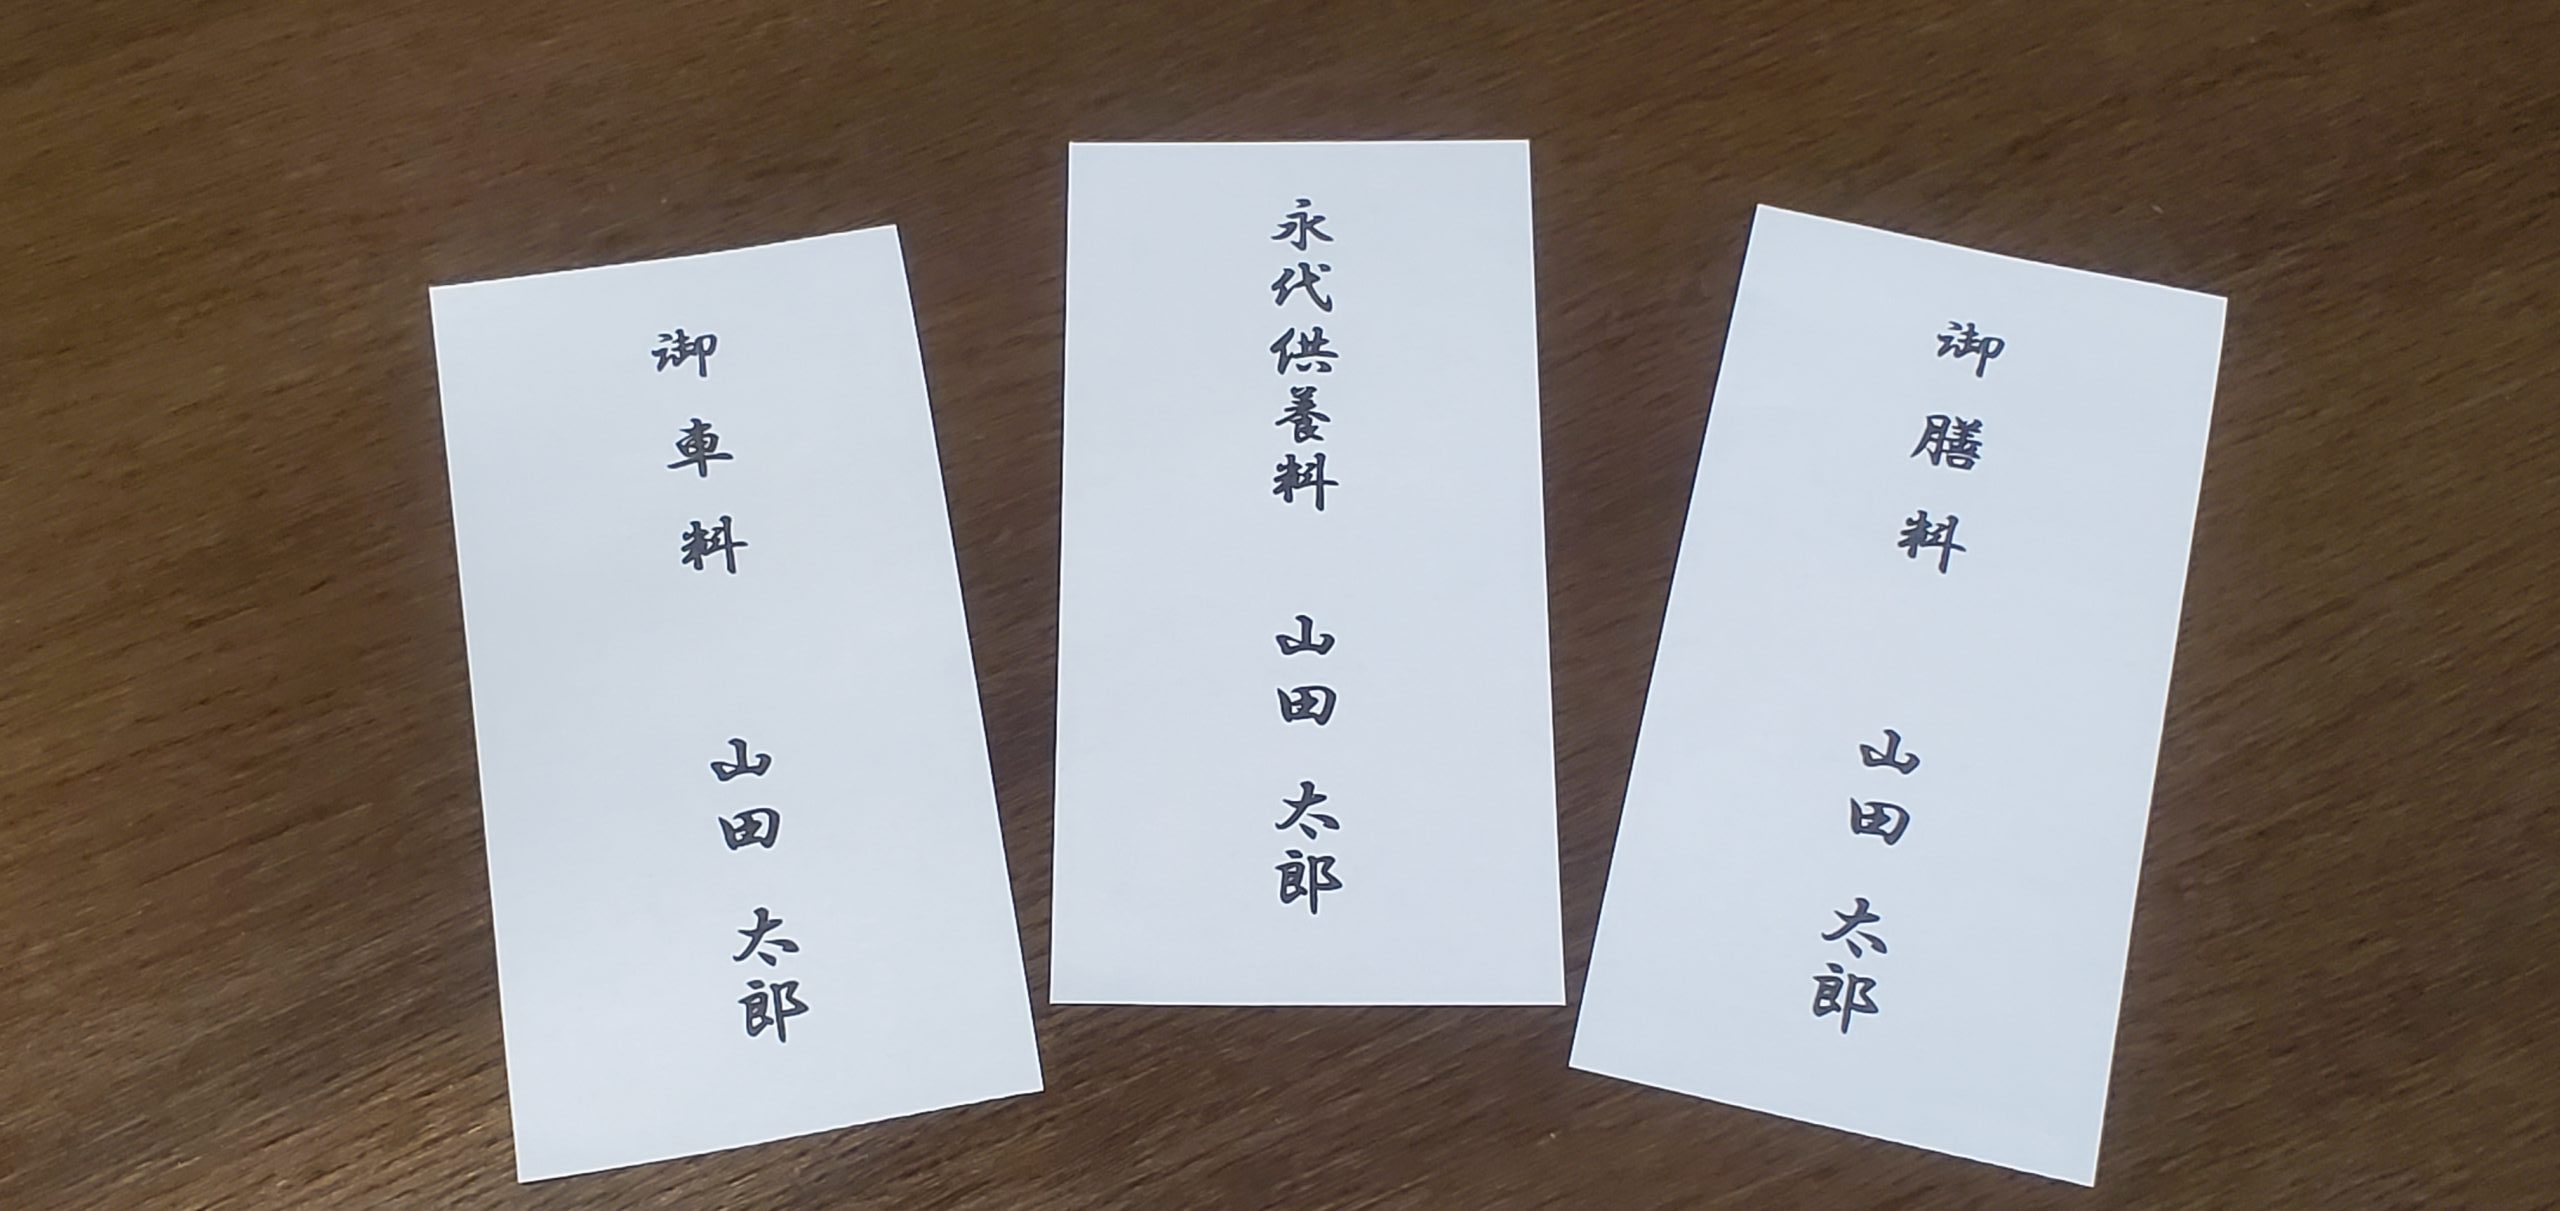 御車料 山田太郎
永代供養料 山田太郎
御膳料 山田太郎